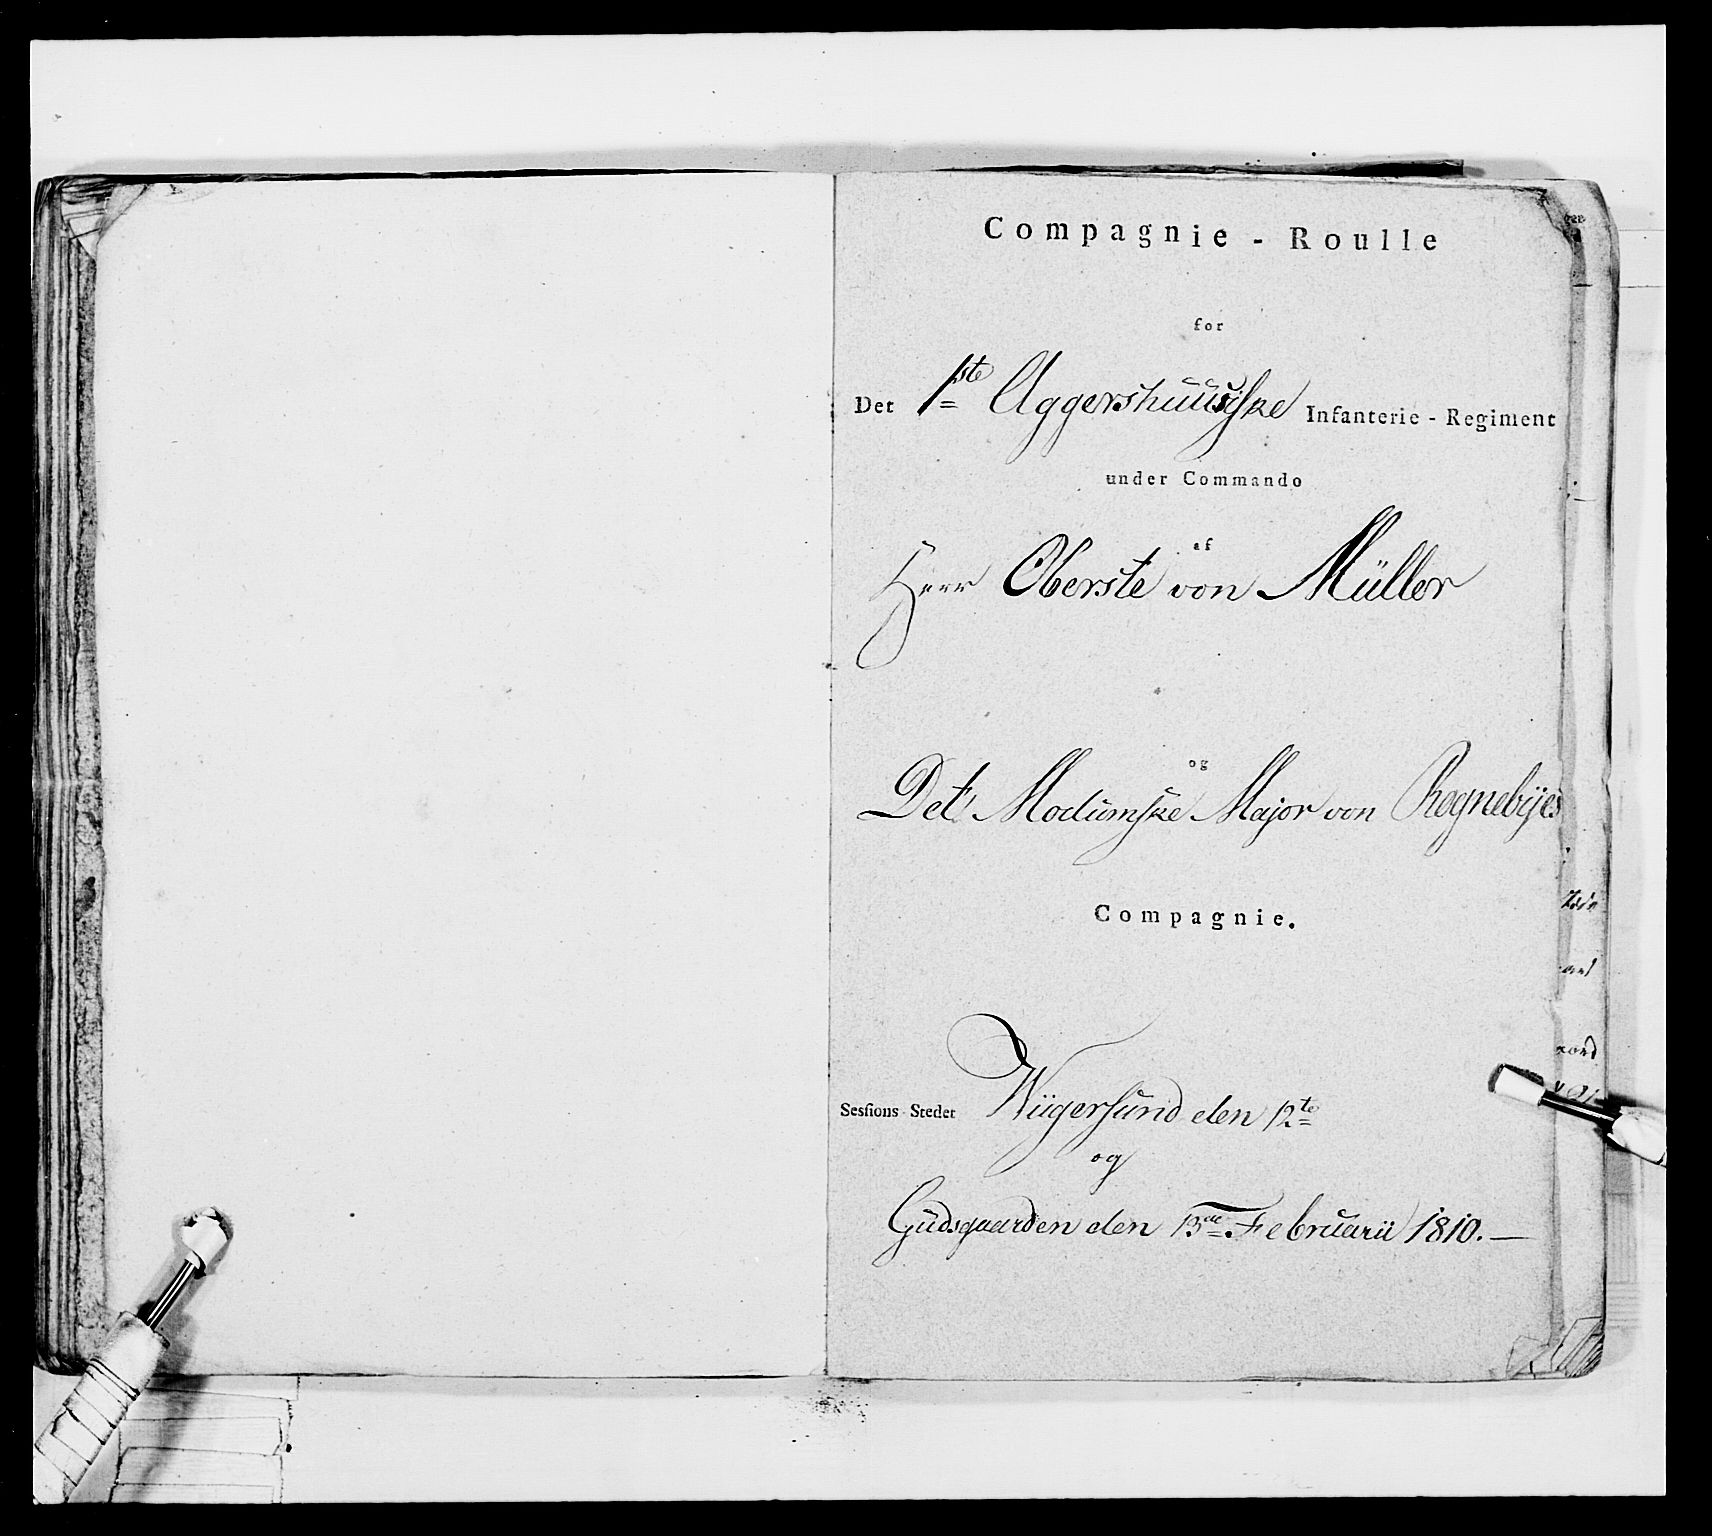 Compagnie - Roulle
for
Det 1ste Aggershuusiske Infanterie - Regiment
under Commando
af
Herr Oberste von Müller
og
Det Modumske Major von Rognebyes
Compagnie.
Sessions Stedet Wiigersund den 12te
og
Gudsgaarden den 13de Februarii 1810. —